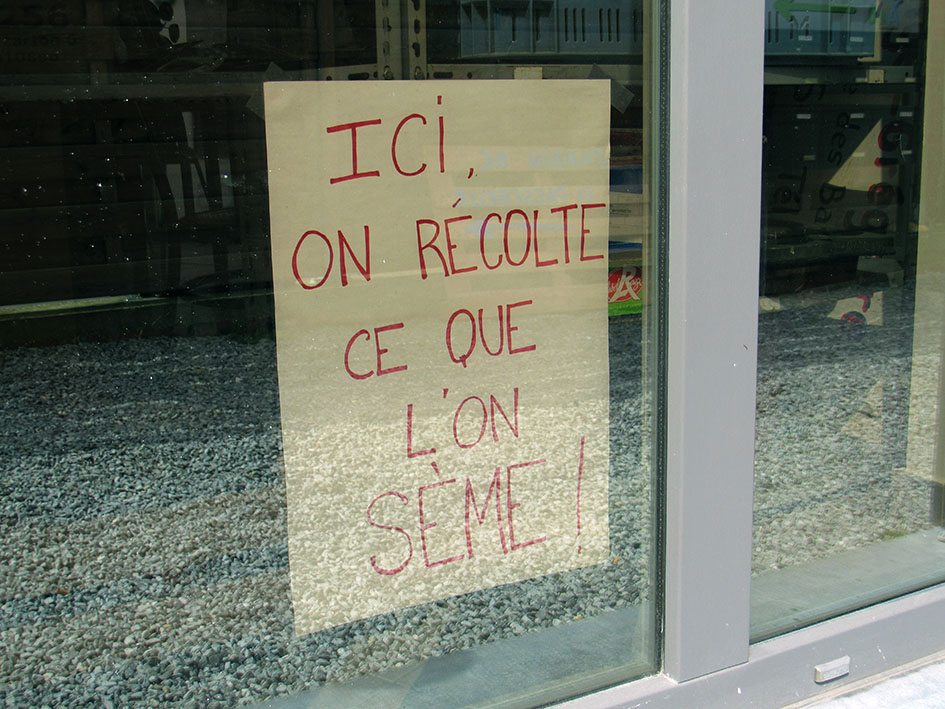 ICI,
ON RÉCOLTE
CE QUE
L'ON
SÈME !